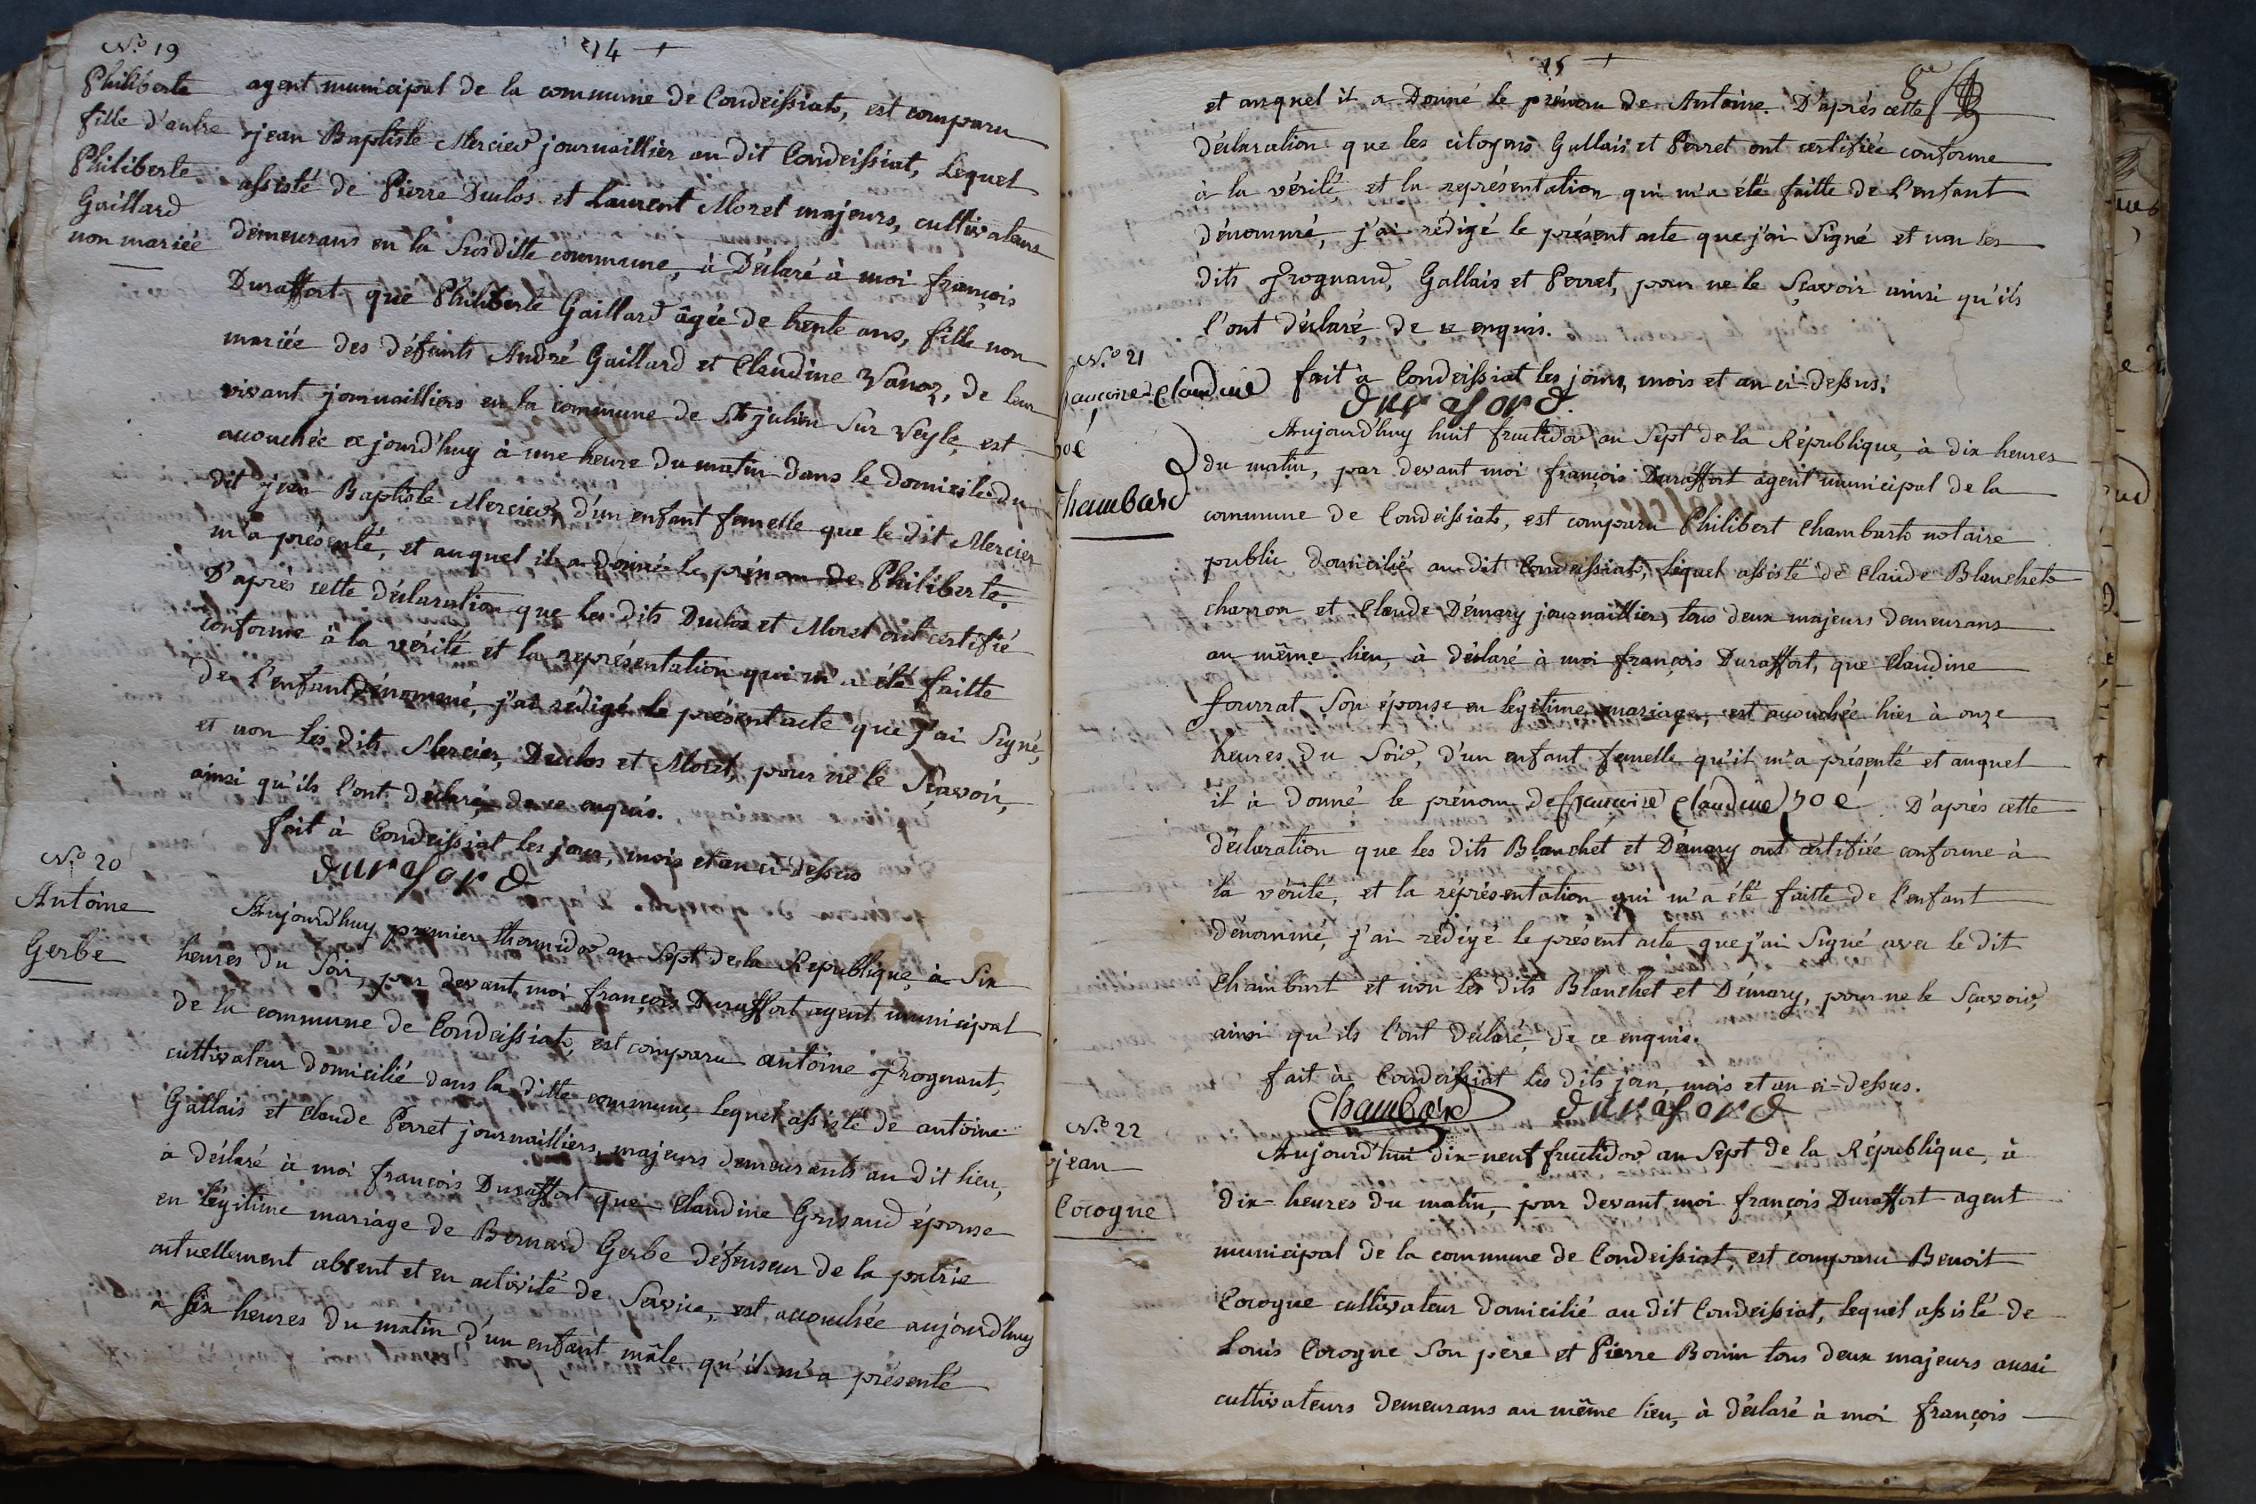 N.o 19
14
Philiberte
fille d'autre
Philiberte
Gaillard
non mariée
agent municipal de la commune de Condeissiat, est comparu
jean Baptiste Mercier journaillier au dit Condeissiat, Lequel
assisté de Pierre Duclos et Laurent Moret majeurs, cultivateurs
demeurans en la Susditte commune, à Déclaré à moi françois
Duraffort que Philiberte Gaillard agée de trente ans, fille non
mariée des défunts André Gaillard et Claudine de leur
vivant journailliers en la commune de St julien Sur Veyle, est
accouchée ce jourd'huy à une heure du matin dans le domicile du
dit jean Baptiste Mercier, d'un enfant femelle que le dit Mercier
m'a présenté, et auquel il a donné le prénom de Philiberte.
D'après cette déclaration que les dits Duclos et Moret ont certifié
conforme à la vérité et la représentation qui m'a été faitte
de l'enfant dénommé, j'ai rédigé le présent acte que j'ai Signé,
et non les dits Mercier, Duclos et Moret, pour ne le Sçavoir,
ainsi qu'ils l'ont déclaré, de ce enquis.
fait à Condeissiat les jour, mois et an ci-dessus
duraford
N.o 20
Antoine
Gerbe
Aujourd'huy premier thermidor an Sept de la Republique, à Six
heures du Soir, par devant moi françois Duraffort agent municipal
de la commune de Condeissiat, est comparu antoine frognant,
cultivateur domicilié dans la ditte commune, lequel assisté de antoine
Gallais et claude Perret journailliers, majeurs demeurants au dit lieu,
a déclaré à moi françois Duraffort que Claudine Grisaud épouse
en légitime mariage de Bernard Gerbe défenseur de la patrie
actuellement absent et en activité de Service, est accouchée aujourd'huy
à six heures du matin d'un enfant mâle qu'il m'a présenté
15
et auquel il a Donné le prénom de Antoine. D'après cette
déclaration que les citoyens Gallais et Perret ont certifiée conforme
à la vérité, et la représentation qui m'a été faitte de l'enfant
dénommé, j'ai rédigé le présent acte que j'ai Signé et non les
dits frognand, Gallais et Perret, pour ne le Sçavoir ainsi qu'ils
l'ont déclaré, de ce enquis.
fait à Condeissiat les jour, mois et an ci-dessus.
duraford.
N.o 21
francoise Claudine
Chambard
Aujourd'huy huit fructidor an Sept de la République, à dix heures
du matin, par devant moi françois Duraffort agent municipal de la
commune de Condeissiat, est comparu Philibert Chambart notaire
public domicilié au dit Condeissiat, Lequel assisté de Claude Blanchet
charron et Claude Démary journaillier, tous deux majeurs demeurans
au même lieu, à déclaré à moi françois Duraffort, que Claudine
fourrat Son épouse en légitime mariage, est accouchée hier à onze
heures du Soir, d'un enfant femelle qu'il m'a présenté et auquel
il à donné le prénom de francoise Claudine D'après cette
déclaration que les dits Blanchet et Démary ont certifiée conforme à
la vérité, et la réprésentation qui m'a été faitte de l'enfant
dénommé, j'ai rédigé le présent acte que j'ai Signé avec le dit
Chambart et non les dits Blanchet et Démary, pour ne le Sçavoir,
ainsi qu'ils l'ont déclaré, de ce enquis.
fait à Condeissiat les dits jour, mois et an ci-dessus.
Chambard duraford
N.o 22
jean
Cocogne
Aujourd'hui dix-neuf fructidor an Sept de la République, à
dix-heures du matin, par devant moi françois Duraffort agent
municipal de la commune de Condeissiat, est comparu Benoit
Cocogne cultivateur domicilié au dit Condeissiat, lequel assisté de
Louis Cocogne Son père et Pierre Bonin tous deux majeurs aussi
cultivateurs demeurans au même lieu, à déclaré à moi françois